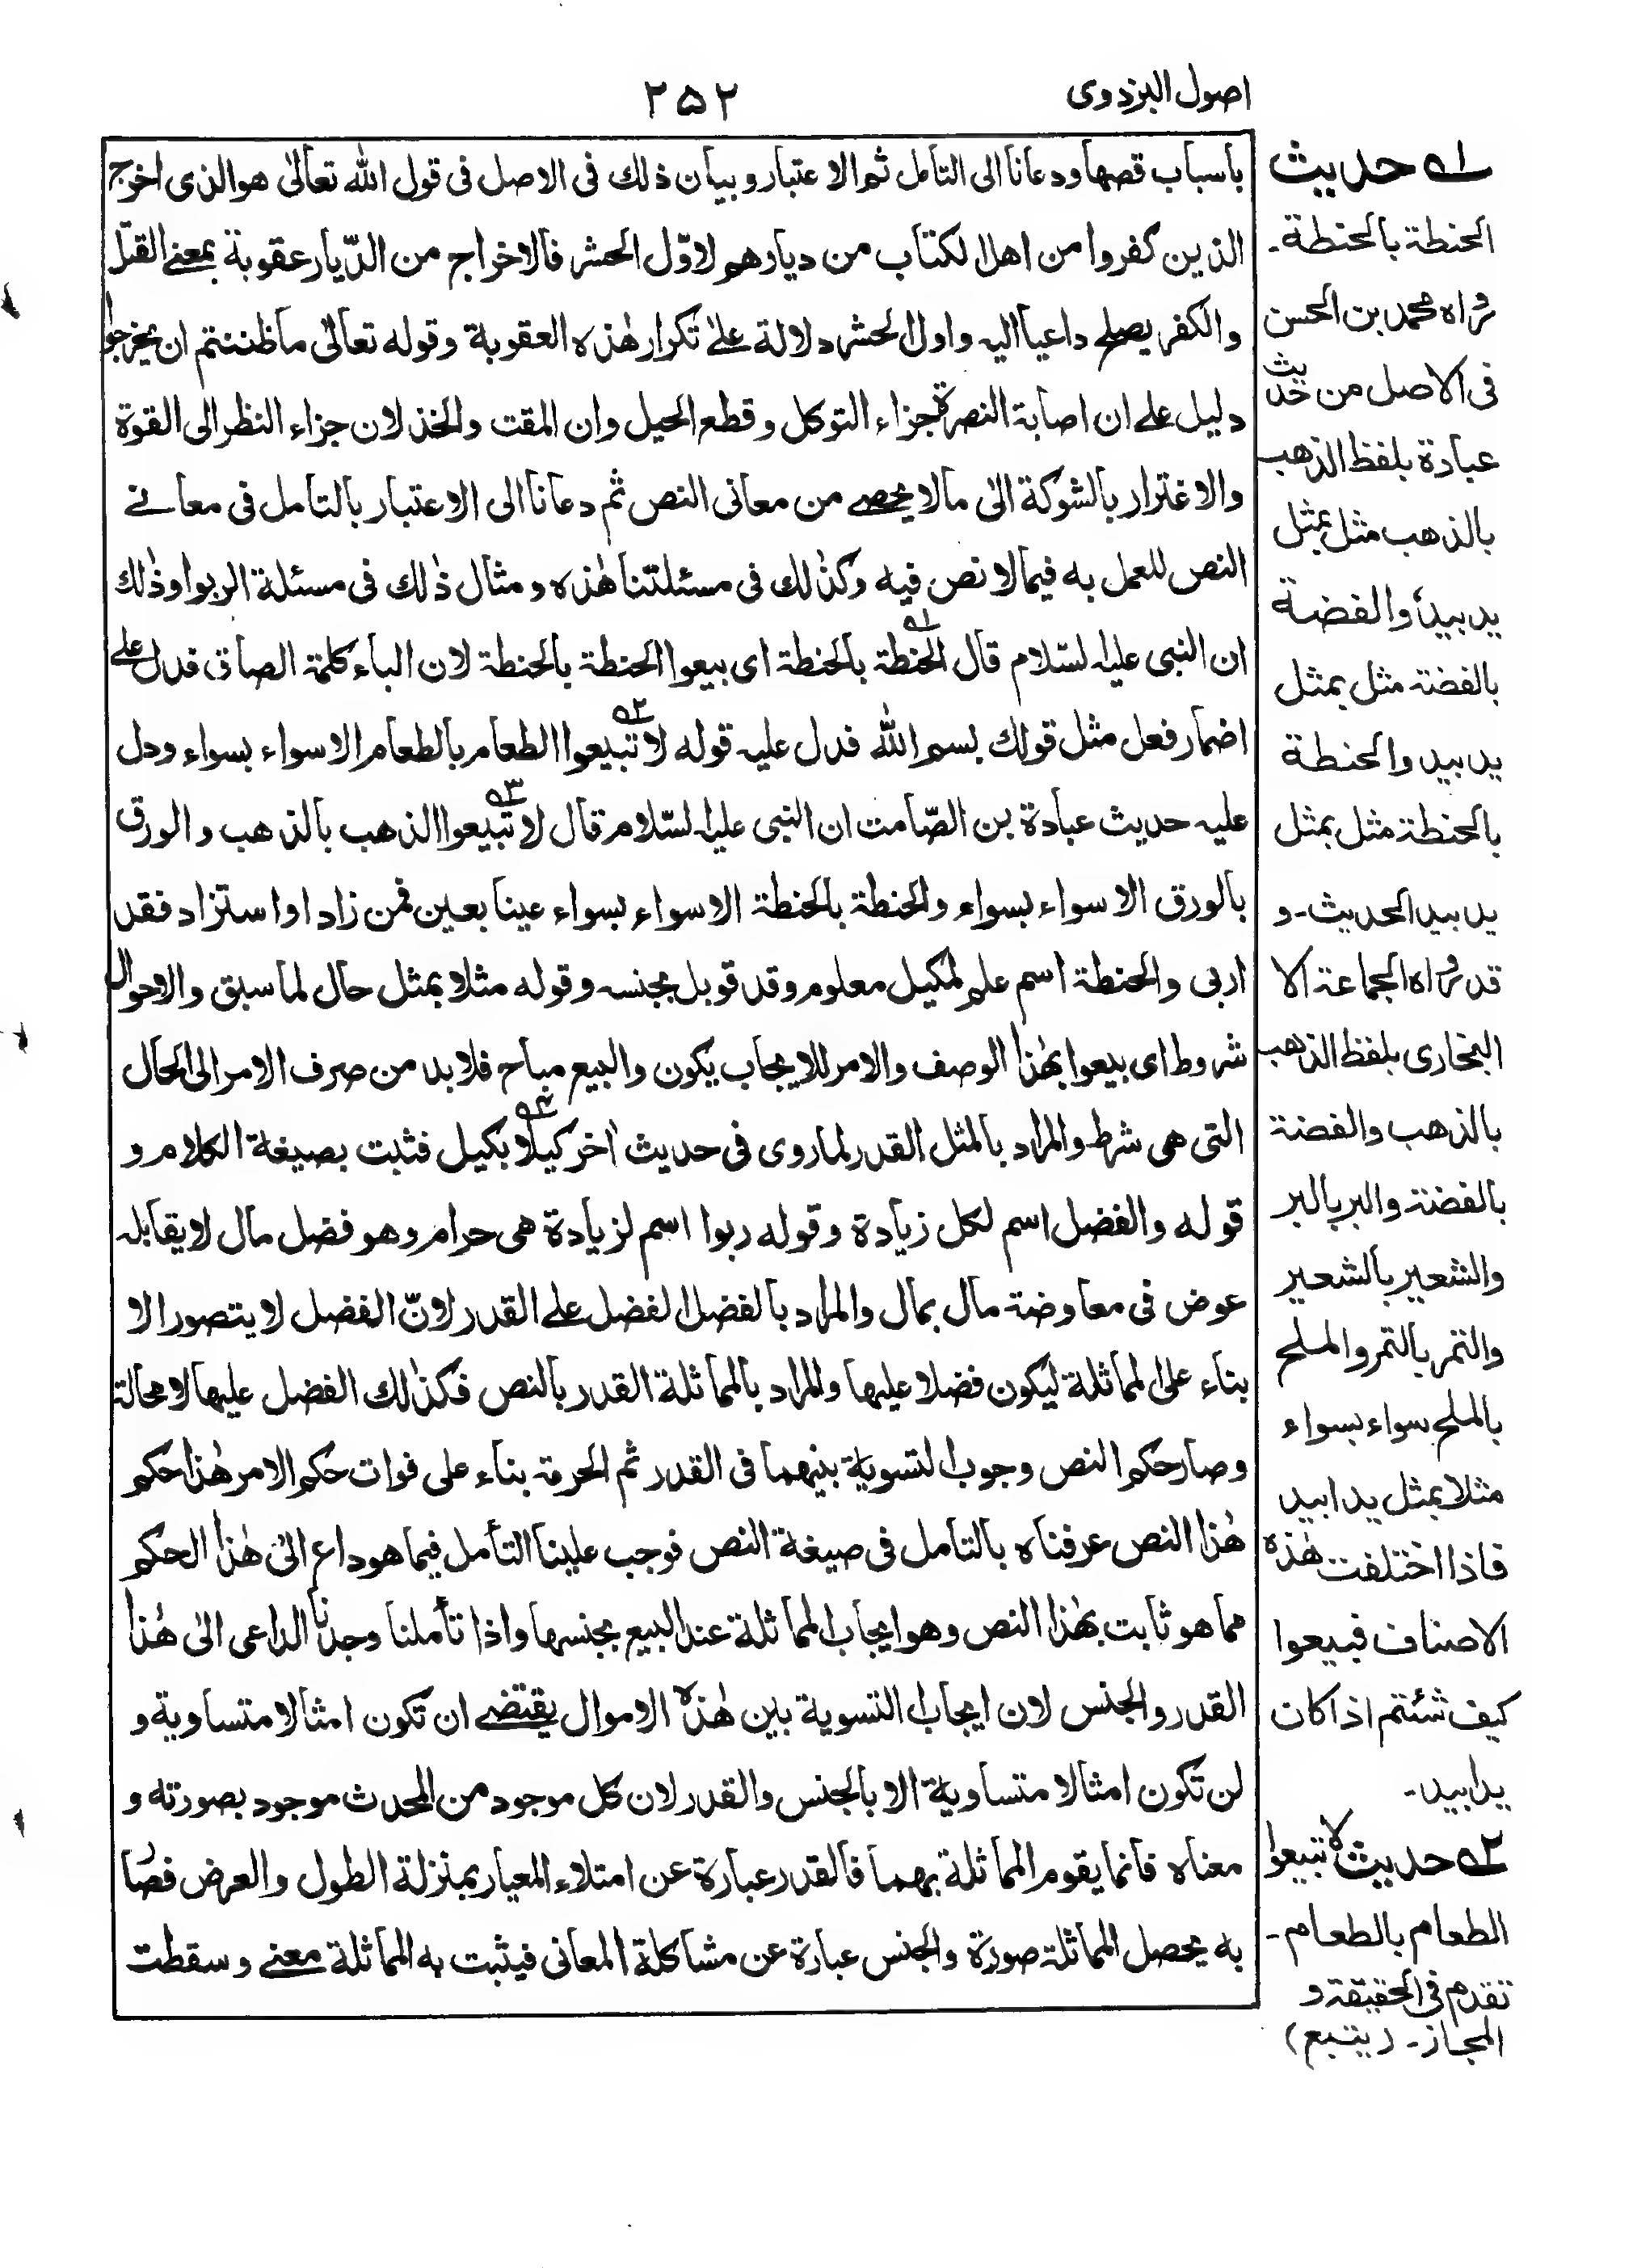 اصول البزدوى
٢٥٢
بأسباب قصها ودعانا الى التامل ثم الاعتبار وبيان ذلك فى الاصل فى قول الله تعالىٰ هو الذى اخرج
الذين كفروا من اهل الكتاب من ديارهم لاوّل الحشر فالاخراج من الدّيار عقوبة بمعنے القتل
والكفر يصلح داعيا اليه واول الحشر دلالة علےٰ تكرار هٰذه العقوبة وقوله تعالىٰ ما ظننتم ان يخرجوا
دليل علے ان اصابة النصرة جزاء التوكل وقطع الحيل وان المقت والخذلان جزاء النظر الى القوة
والاغترار بالشوكة الىٰ مالا يحصے من معانى النص ثم دعانا الى الاعتبار بالتامل فى معانے
النص للعمل به فيما لا نص فيه وكذٰلك فى مسئلتنا هٰذه ومثال ذٰلك فى مسئلة الربوا وذٰلك
ان النبى عليه السّلام قال الحنطة بالحنطة اى بيعوا الحنطة بالحنطة لان الباء كلمة الصاق فدل علے
اضمار فعل مثل قولك بسم الله فدل عليه قوله لا تبيعوا الطعام بالطعام الا سواء بسواء ودل
عليه حديث عبادة بن الصّامت ان النبى عليه السّلام قال لا تبيعوا الذهب بالذهب والورق
بالورق الا سواء بسواء والحنطة بالحنطة الا سواء بسواء عينا بعين فمن زاد او استزاد فقد
اربى والحنطة اسم علم لمكيل معلوم وقد قوبل بجنسه وقوله مثلا بمثل حال لما سبق والاحوال
شروط اى بيعوا بهٰذا الوصف والامر للايجاب يكون والبيع مباح فلابد من صرف الامر الى الحال
التى هى شرط والمراد بالمثل القدر لما روى فى حديث اٰخر كيلا بكيل فثبت بصيغة الكلام و
قوله والفضل اسم لكل زيادة وقوله ربوا اسم لزيادة هى حرام وهو فضل مال لا يقابله
عوض فى معاوضة مال بمال والمراد بالفضل الفضل علے القدر لانّ الفضل لا يتصور الا
بناء علىٰ المماثلة ليكون فضلا عليها والمراد بالمماثلة القدر بالنص فكذٰلك الفضل عليها لا محالة
وصار حكم النص وجوب التسوية بينهما فى القدر ثم الحرمة بناء على فوات حكم الامر هٰذا حكم
هٰذا النص عرفناه بالتامل فى صيغة النص فوجب علينا التأمل فيما هو داع الىٰ هٰذا الحكم
مما هو ثابت بهٰذا النص وهو ايجاب المماثلة عند البيع بجنسها واذا تأملنا وجدنا الداعى الىٰ هٰذا
القدر والجنس لان ايجاب التسوية بين هٰذه الاموال يقتضے ان تكون امثالا متساوية و
لن تكون امثالا متساوية الا بالجنس والقدر لان كل موجود من المحدث موجود بصورته و
معناه فانما يقوم المماثلة بهما فالقدر عبارة عن امتلاء المعيار بمنزلة الطول والعرض فصار
به يحصل المماثلة صورة والجنس عبارة عن مشاكلة المعانى فيثبت به المماثلة معنے وسقطت
١ه حديث
الحنطة بالحنطة۔
رواه محمد بن الحسن
فى الاصل من حديث
عبادة بلفظ الذهب
بالذهب مثل بمثل
يد بيد والفضة
بالفضة مثل بمثل
يد بيد والحنطة
بالحنطة مثل بمثل
يد بيد الحديث۔ و
قد رواه الجماعة الا
البخارى بلفظ الذهب
بالذهب والفضة
بالفضة والبر بالبر
والشعير بالشعير
والتمر بالتمر والملح
بالملح سواء بسواء
مثلا بمثل يدا بيد
فاذا اختلفت هٰذه
الاصناف فبيعوا
كيف شئتم اذا كان
يدا بيد۔
٢ه حديث لا تبيعوا
الطعام بالطعام۔
تقدم فى الحقيقة و
المجاز۔ (يتبع)